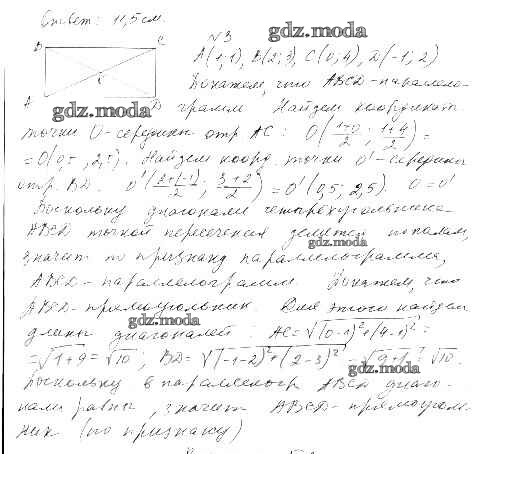 Ответ: 11,5 см.
N3
gdz.moda
A(1;1), B(2;3), C(0;4), D(-1;2)
B C
Докажем, что ABCD-параллело-
A D грамм. Найдем координаты
gdz.moda
точки O-середины отр AC: O(1+0/2; 1+4/2)=
=O(0,5; 2,5). Найдем коорд. точки O'-середины
отр. BD. O'(2+(-1)/2; 3+2/2)=O'(0,5; 2,5). O=O'
Поскольку диагонали четырехугольника
ABCD точкой пересечения делятся попалам,
gdz.moda
значит по признаку параллелограмма,
ABCD-параллелограмм. Докажем, что
ABCD-прямоугольник. Для этого найдем
gdz.moda
длины диагоналей AC=√(0-1)²+(4-1)²=
=√1+9=√10; BD=√(-1-2)²+(2-3)²=√9+1=√10.
gdz.moda
Поскольку в параллелогр ABCD диаго-
нали равны, значит ABCD-прямоугол-
ник (по признаку)